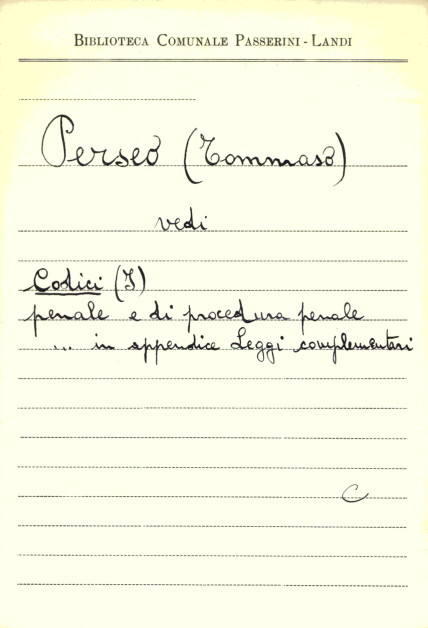 BIBLIOTECA COMUNALE PASSERINI - LANDI
Perseo (Tommaso)
vedi
Codici (I)
penale e di procedura penale
... in appendice Leggi complementari
C